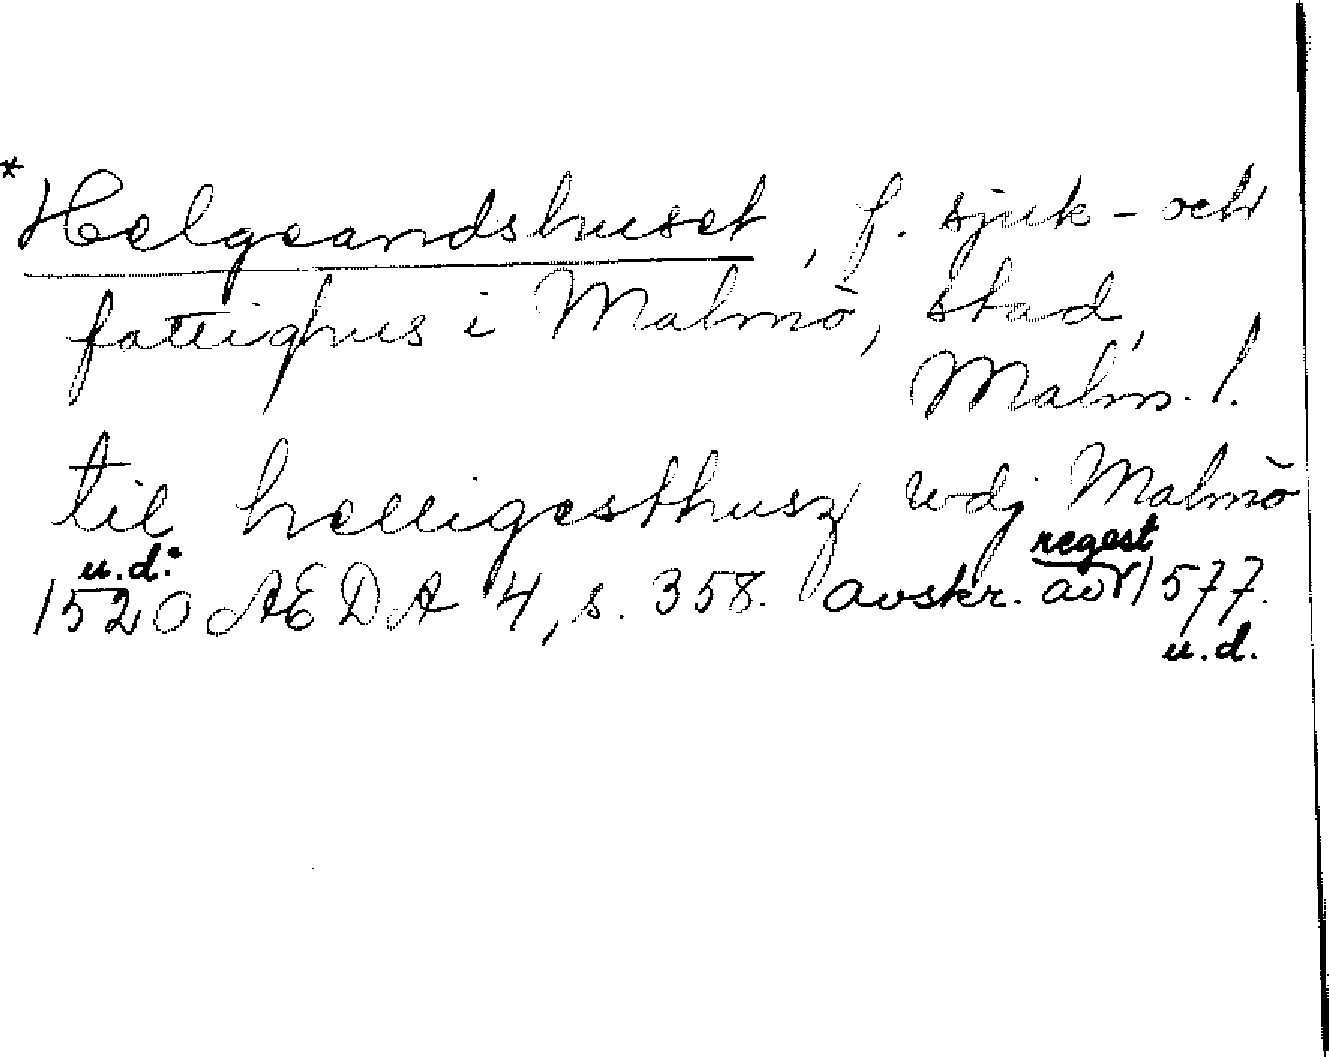 *Helgeandshuset, f. sjuk- och
fattighus i Malmö, stad,
Malm. l.
til helligesthusz wdj Malmö
u.d:
regest
1520 AEDA 4, s. 358. avskr. av 1577.
u.d.